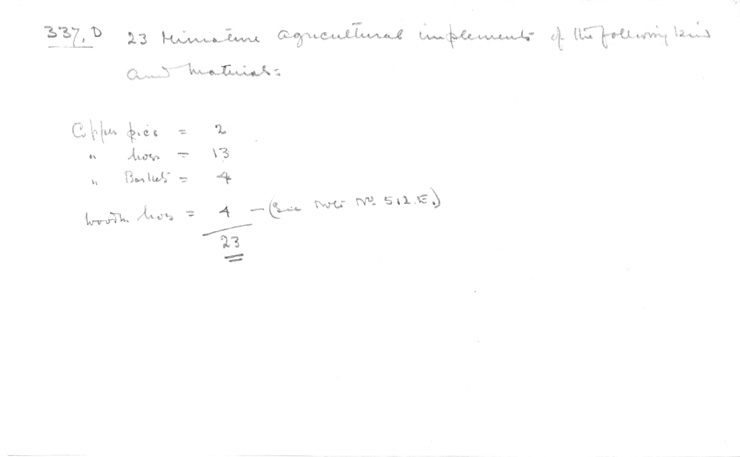 337, D 23 Miniature agricultural implements of the following kind
and material:
Copper picks = 2
" hoes = 13
" Baskets = 4
Wooden hoes = 4 — (See Note No. 512. E.)
23